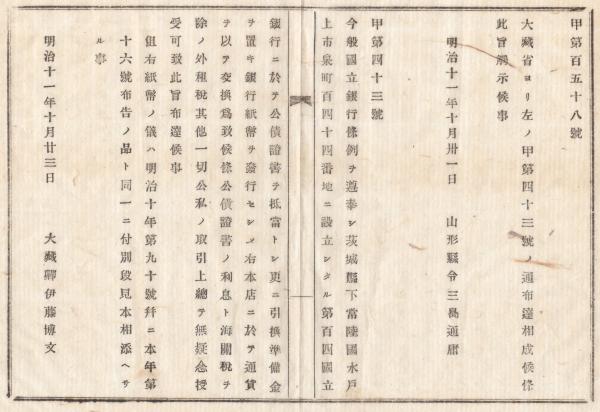 甲第百五十八號
大藏省ヨリ左ノ甲第四十三號ノ通布達相成候條
此旨揭示候事
明治十一年十月卅一日 山形縣令三島通庸
甲第四十三號
今般國立銀行條例ヲ遵奉シ茨城縣下常陸國水戸
上市泉町百四十四番地ニ設立シタル第百四國立
銀行ニ於テ公債證書ヲ抵當トシ更ニ引換準備金
ヲ置キ銀行紙幣ヲ發行セシメ右本店ニ於テ通貨
ヲ以テ交換爲致候條公債證書ノ利息ト海關税ヲ
除ノ外租税其他一切公私ノ取引上總テ無疑念授
受可致此旨布達候事
但右紙幣ノ儀ハ明治十年第九十號幷ニ本年第
十六號布告ノ品ト同一ニ付別段見本相添ヘサ
ル事
明治十一年十月廿三日 大藏卿伊藤博文